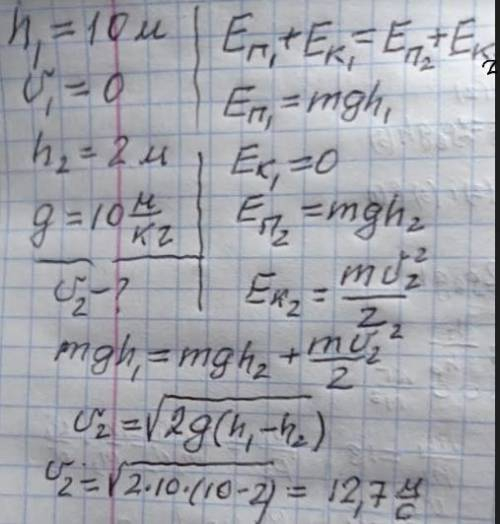 h₁ = 10 м
υ₁ = 0
h₂ = 2 м
g = 10 н/кг
υ₂ - ?
Eп₁ + Eк₁ = Eп₂ + Eк₂
Eп₁ = mgh₁
Eк₁ = 0
Eп₂ = mgh₂
Eк₂ = mυ₂²/2
mgh₁ = mgh₂ + mυ₂²/2
υ₂ = √2g(h₁-h₂)
υ₂ = √2·10·(10-2) = 12,7 м/с